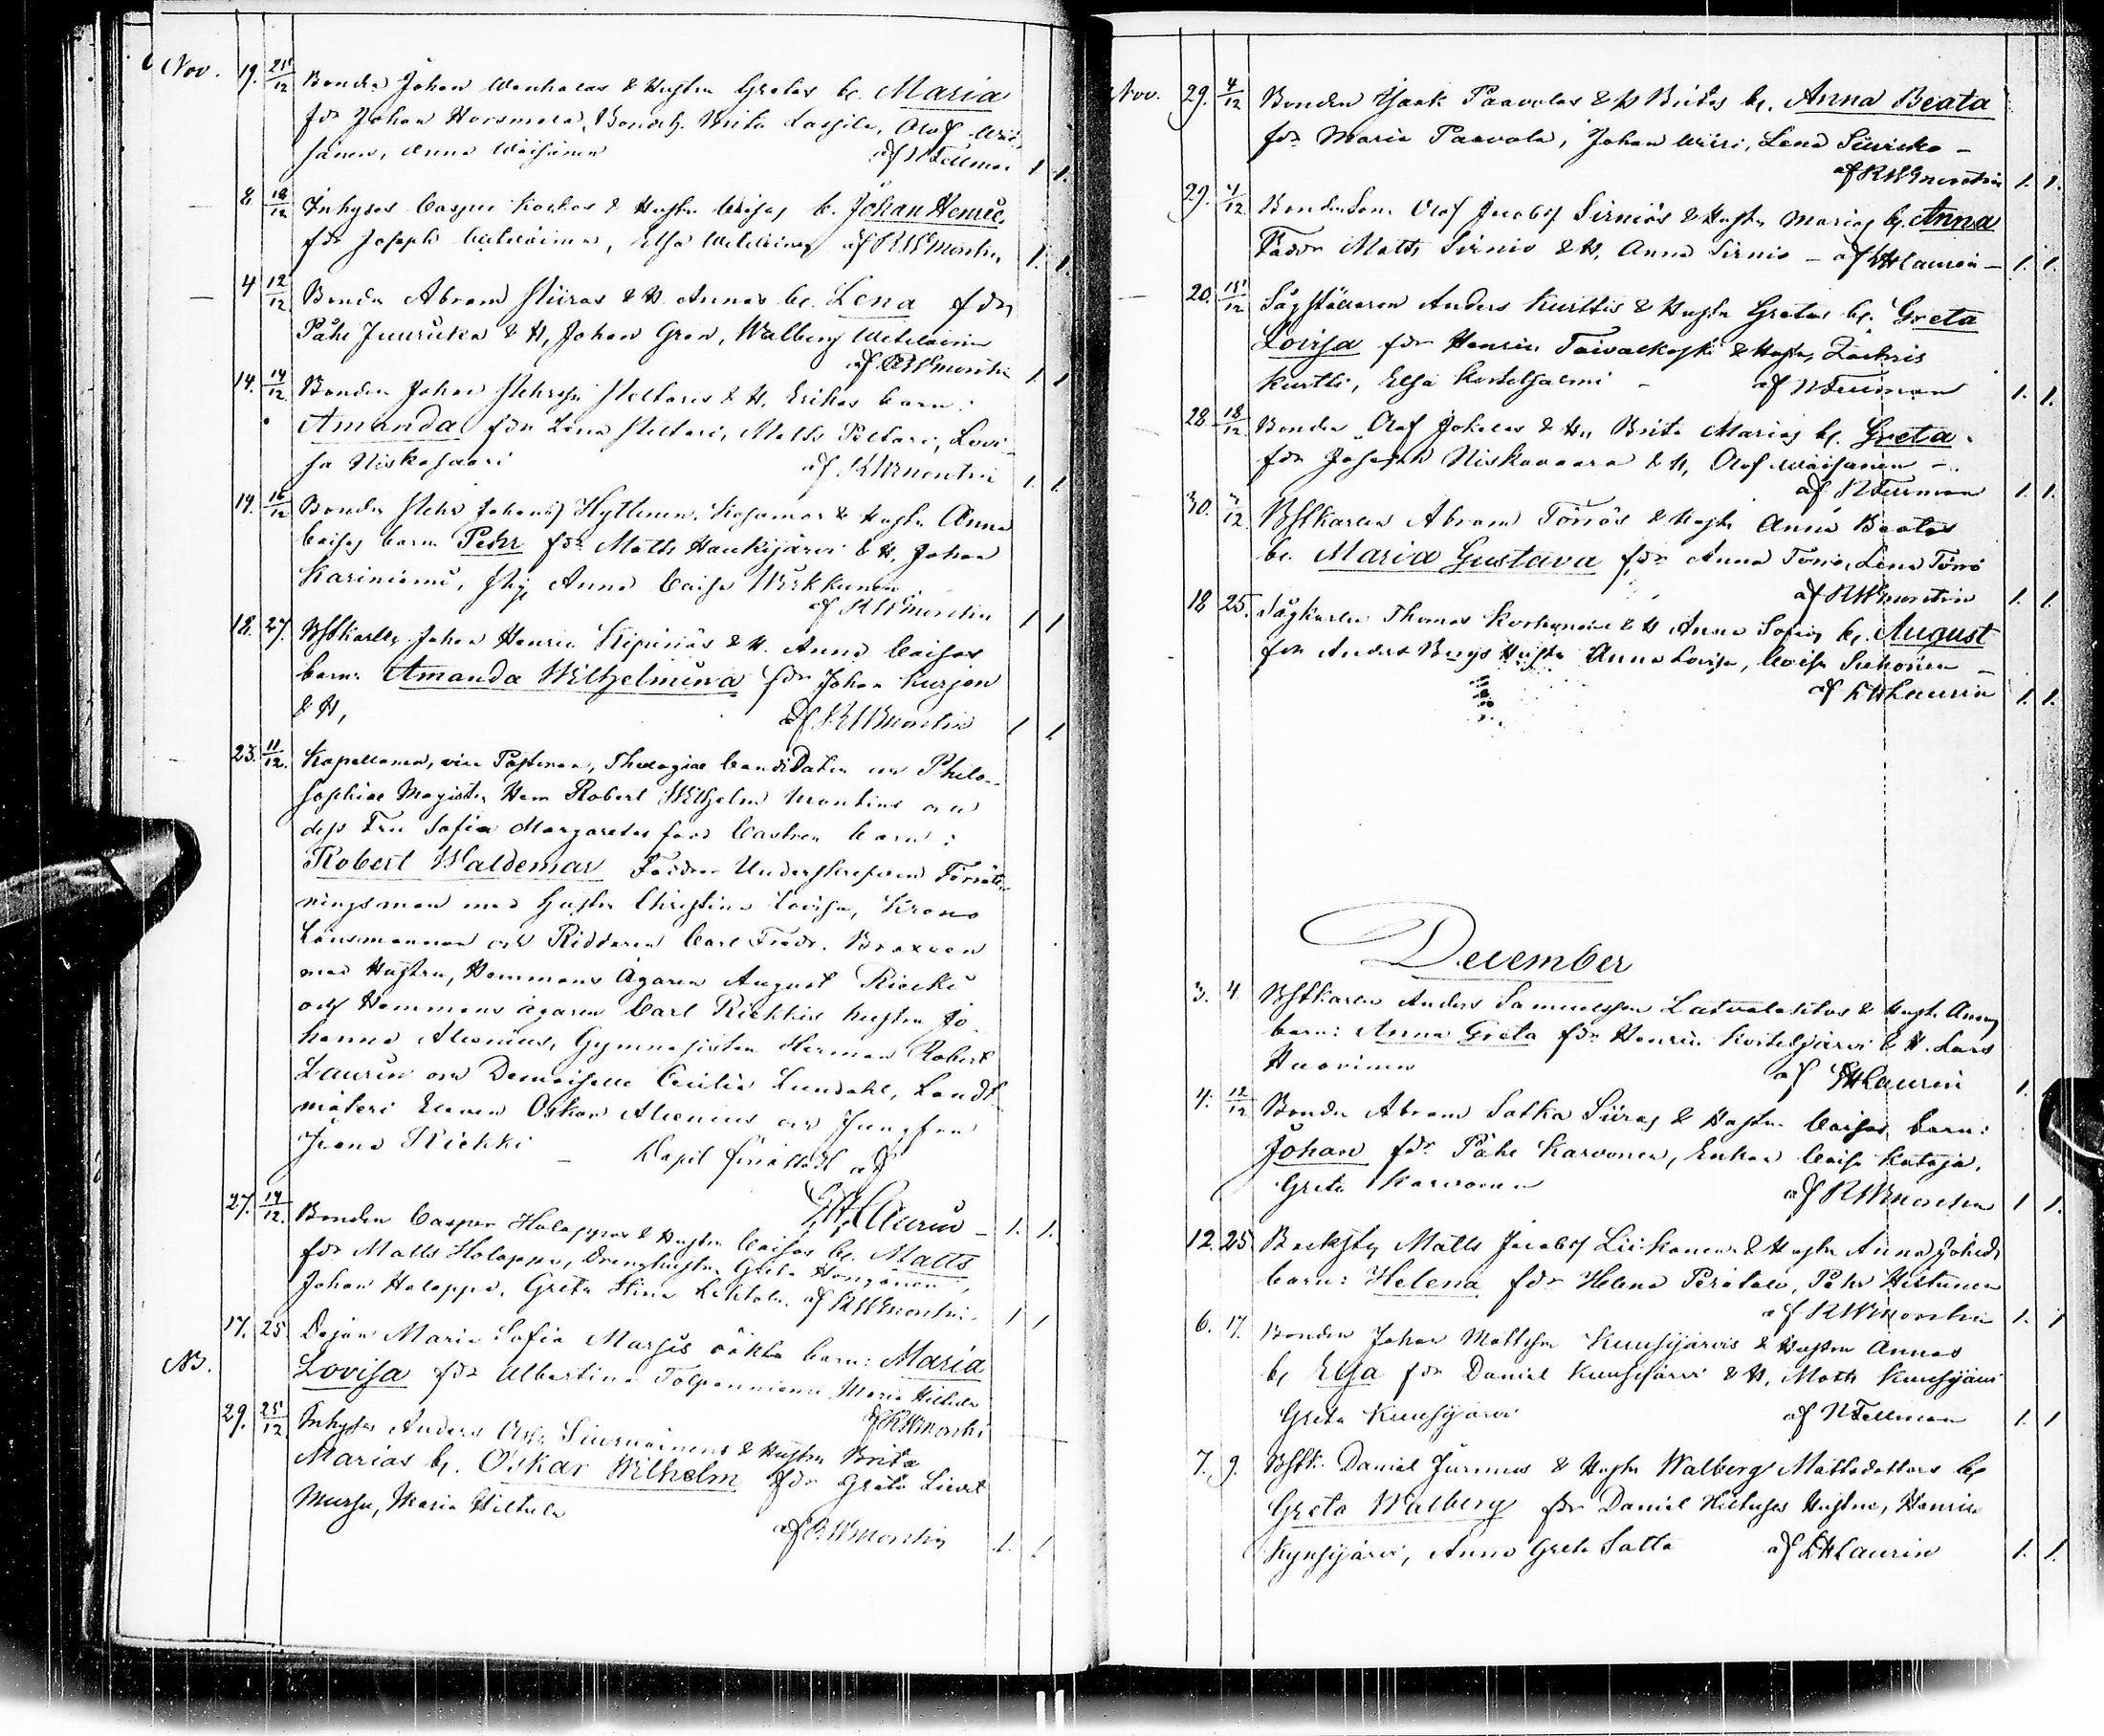 Nov. 19. 25/12 Bonden Johan Wanhalas & Hustru Gretas br. Maria
fdr Johan Horsmala, Bondeh. Brita Lassila, Olof Wäi-
sänen, Anna Wäisänen af N Fellman 1 1.
8 18/12 Inhyses Caspar Koskos & Hustru Caisas b. Johan Henric.
fdr Joseph , Elsa af RWMontin 1. 1.
4 12/12 Bonden Abram Siiras & H. Annas br. Lena fdr
Påhl Juurikka & H, Johan Gran, Walborg
af RWMontin 1. 1
14. 14/12 Bonden Johan Pehrsson Peltaris & H. Erikas barn:
Amanda fdr Lena Peltari, Matts Peltari, Lovi-
sa Niskasaari af RWMontin 1. 1.
14. 16/12 Bonden Pehr Johanss Hyttinen, Kusamo & Hustru Anna
Caisas barn Pehr fdr Matts Haukijärvi & H. Johan
Kariniemi, Anna Caisa Wirkkunen
af RWMontin 1 1
18. 27. Johan Henric Kipinäs & H. Anna Caisas
barn: Amanda Wilhelmina fdr Johan Kurjon
& H, af RWMontin 1 1.
23. 11/12. Kapellanen, vice Pastoren, Theologiae Candidaten och Philo-
sophiae Magister Herr Robert Wilhelm Montins och
dess Fru Sofia Margaretas född Castren barn:
Robert Waldemar Faddrar Underskrefven Förrätt-
ningsman med Hustru Christina Lovisa, Krono
Länsmannen och Riddaren Carl Fredr. Boxeen
med Hustru, Hemmans Ägaren August Riekki
och Hemmans ägaren Carl Riekkis hustru Jo-
hanna Alcenius, Gymnasisten Herman Robert
Laurin och Demoiselle Cecilia Lundahl, Landt-
mäteri Eleven Oskar Alcenius och Jungfrun
Irena Riekki – Dopet förrättadt af
LHLaurin – 1. 1.
27. 14/12. Bonden Caspar Holappas & Hustru Caisas br. Matts
fdr Matts Holappa, Drenghustru Greta Honganen,
Johan Holappa, Greta Stina Lehtola. af RWMontin. 1 1
17. 25 Pigan Maria Sofia Marsis oäkta barn: Maria
NB. Lovisa fdr Albertina Tolpanniemi Maria Hiltula
af RWMontin
29. 25/12 Inhyses Anders Siurnainens & Hustru Brita
Marias br. Oskar Wilhelm fdr Greta
Mursu, Maria Hiltula
af RWMontin 1. 1
Nov. 29. 4/12 Bonden Isaak Paavolas & H Britas br. Anna Beata
fdr Maria Paavola, Johan , Lena
af RWMontin 1. 1.
29. 4/12 Bondeson Olof Jacobss Sirniös & Hustru Marias br. Anna
Faddr Matts Sirniö & H, Anna Sirniö – af LHLaurin – 1. 1.
20. 15/12 Sågställaren Anders Kurttis & Hustru Gretas br. Greta
Lovisa fdr Henric Taivalkoski & Hustru, Zachris
Kurtti, Elsa – af N Fellman 1. 1.
28. 18/12 Bonden Olof Jokelas & H. Brita Marias br. Greta.
fdr Joseph Niskavaara & H, Olof Wäisänen –
af N Fellman 1 1.
30. /12 Abram Törrös & Hustru Anna Beatas
br. Maria Gustava fdr Anna Törrö, Lena Törrö
af RWMontin 1. 1.
18 25. Sågkarlen Thomas Korhonens & H Anna Sofias br. August
fdr Anders Bergs Hustru Anna Lovisa, Caisa –
af LHLaurin 1. 1.
December
3. 4. Anders Samuelsson Latvalehtos & Hustru Annas
barn: Anna Greta fdr Henric & H. Lars
Huovinen af LHLaurin 1.
4. 12/12 Bonden Abram Satka Siiras & Hustru Caisas barn:
Johan fdr Påhl Karvonen, Enkan Caisa Kataja,
Greta Karvonen af RWMontin 1 1.
12. 25 Backstg Matts Jacobss Liikanens & Hustru Anna Johsds
barn: Helena fdr Helena Perätalo, Pehr Hiltunen
af RWMontin 1. 1
6. 17. Bonden Johan Mattsson Kuusijärvis & Hustru Annas
br Elsa fdr Daniel Kuusijärvi & H, Matts Kuusijärvi
Greta Kuusijärvi af N Fellman 1. 1
7. 9. Daniel Jurmus & Hustru Walborg Mattsdotters br
Greta Walborg fdr Daniel Hiltuses Hustru, Henric
Kynsijärvi, Anna Greta Salla af LHLaurin 1. 1.